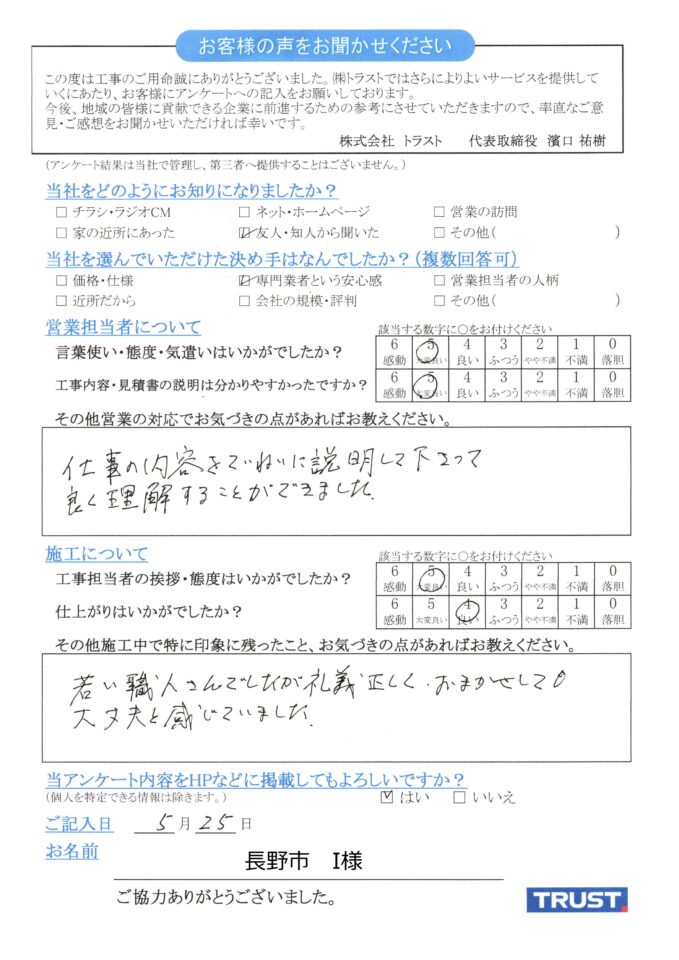 お客様の声をお聞かせください
この度は工事のご用命誠にありがとうございました。㈱トラストではさらによりよいサービスを提供して
いくにあたり、お客様にアンケートへの記入をお願いしております。
今後、地域の皆様に貢献できる企業に前進するための参考にさせていただきますので、率直なご意
見・ご感想をお聞かせいただければ幸いです。
株式会社 トラスト 代表取締役 濱口 祐樹
(アンケート結果は当社で管理し、第三者へ提供することはございません。)
当社をどのようにお知りになりましたか?
□ チラシ・ラジオCM □ ネット・ホームページ □ 営業の訪問
□ 家の近所にあった ☑ 友人・知人から聞いた □ その他( )
当社を選んでいただけた決め手はなんでしたか?(複数回答可)
□ 価格・仕様 ☑ 専門業者という安心感 □ 営業担当者の人柄
□ 近所だから □ 会社の規模・評判 □ その他( )
営業担当者について 該当する数字に○をお付けください
言葉使い・態度・気遣いはいかがでしたか?
6 5 4 3 2 1 0
感動 大変良い 良い ふつう やや不満 不満 落胆
工事内容・見積書の説明は分かりやすかったですか?
6 5 4 3 2 1 0
感動 大変良い 良い ふつう やや不満 不満 落胆
その他営業の対応でお気づきの点があればお教えください。
仕事の内容をていねいに説明して下さって
良く理解することができました.
施工について 該当する数字に○をお付けください
工事担当者の挨拶・態度はいかがでしたか?
6 5 4 3 2 1 0
感動 大変良い 良い ふつう やや不満 不満 落胆
仕上がりはいかがでしたか?
6 5 4 3 2 1 0
感動 大変良い 良い ふつう やや不満 不満 落胆
その他施工中で特に印象に残ったこと、お気づきの点があればお教えください。
若い職人さんでしたが礼義正しく、おまかせしても
大丈夫と感じていました.
当アンケート内容をHPなどに掲載してもよろしいですか?
(個人を特定できる情報は除きます。) ☑ はい □ いいえ
ご記入日 5月25日
お名前 長野市 I様
ご協力ありがとうございました。
TRUST.